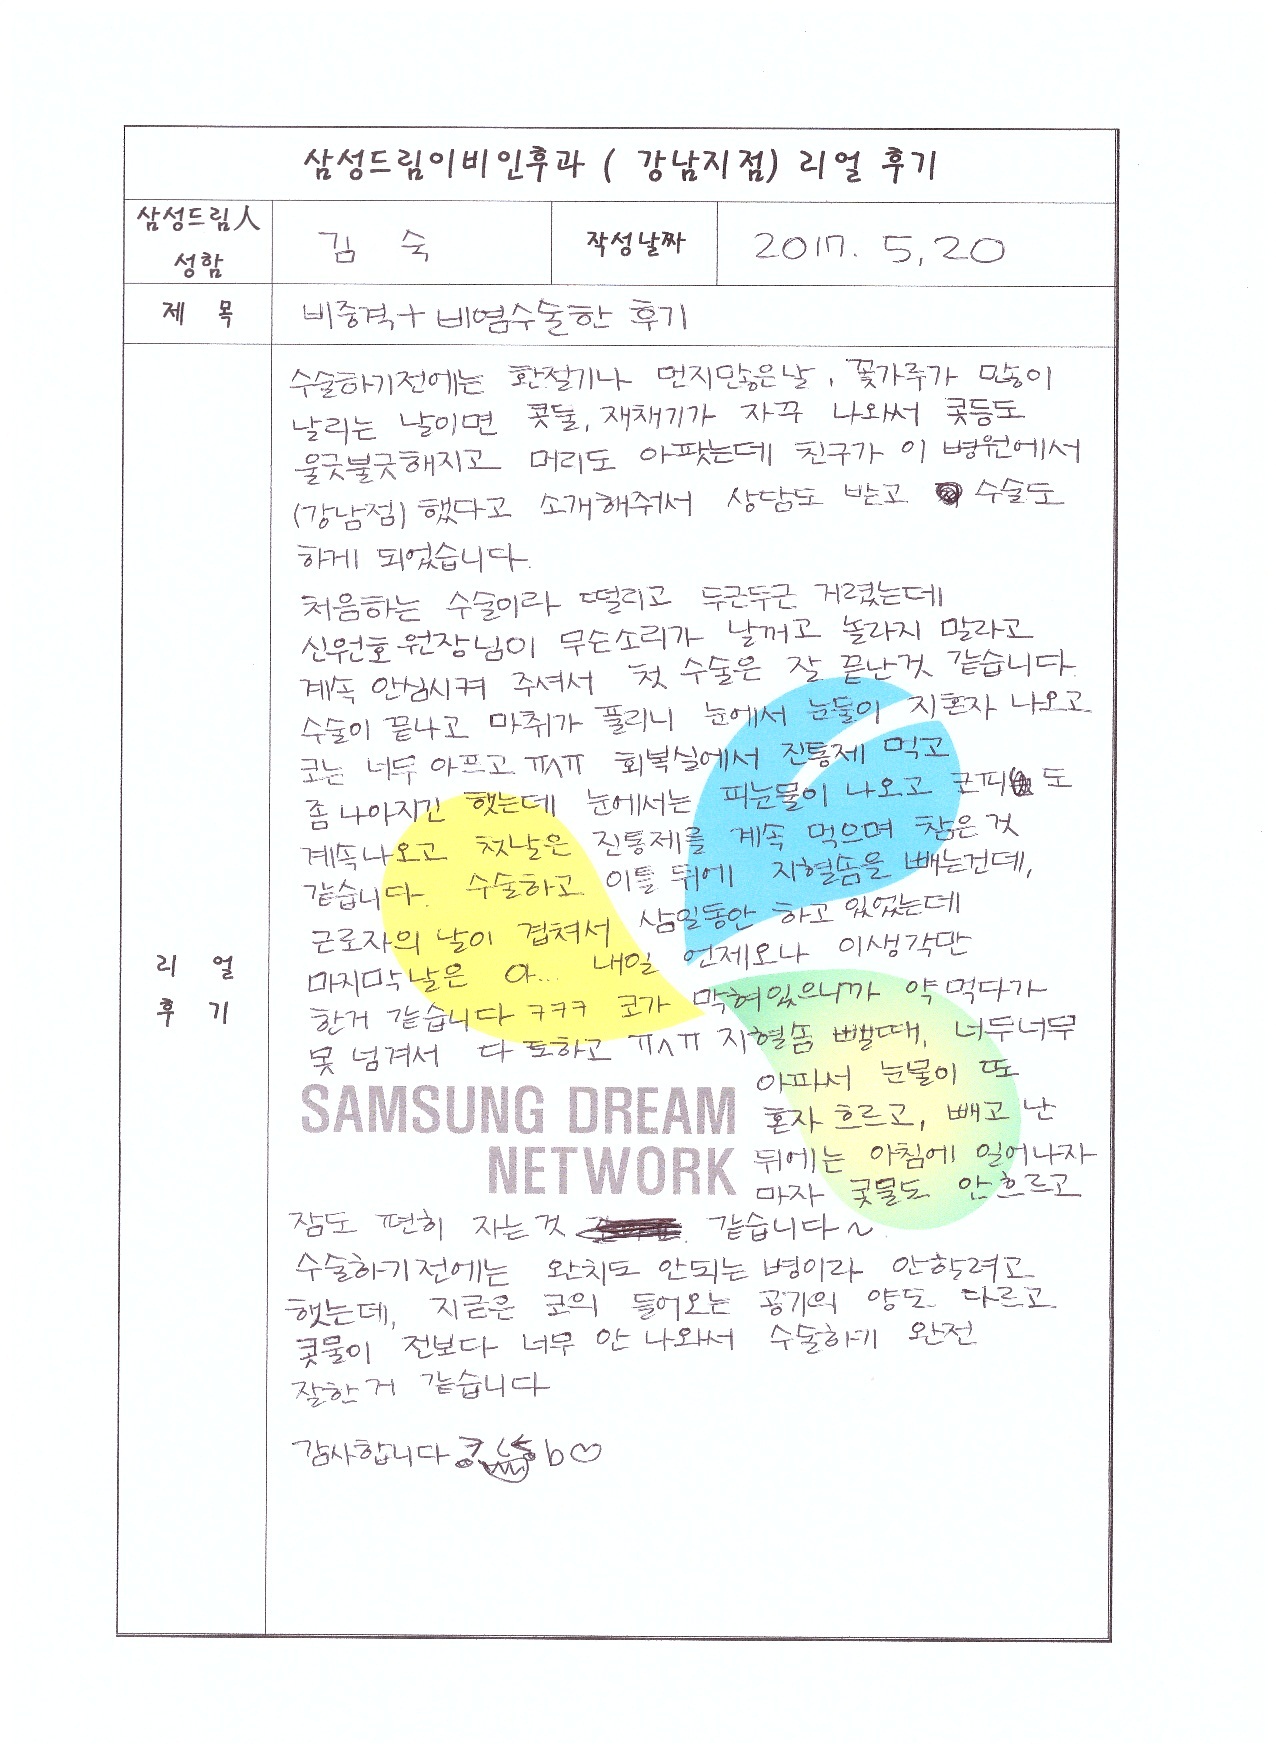 삼성드림이비인후과 ( 강남지점) 리얼 후기
삼성드림人 성함
김 숙
작성날짜
2017. 5, 20
제 목
비중격+ 비염수술한 후기
리 얼 후 기
수술하기전에는 환절기나 먼지많은날, 꽃가루가 많이
날리는 날이면 콧물, 재채기가 자꾸 나와서 콧등도
울긋불긋해지고 머리도 아팠는데 친구가 이 병원에서
(강남점) 했다고 소개해줘서 상담도 받고 수술도
하게 되었습니다.
처음하는 수술이라 떨리고 두근두근 거렸는데
신원호 원장님이 무슨소리가 날꺼고 놀라지 말라고
계속 안심시켜 주셔서 첫 수술은 잘 끝난것 같습니다.
수술이 끝나고 마취가 풀리니 눈에서 눈물이 지혼자 나오고
코는 너무 아프고 ㅠㅅㅠ 회복실에서 진통제 먹고
좀 나아지긴 했는데 눈에서는 피눈물이 나오고 코피도
계속나오고 첫날은 진통제를 계속 먹으며 참은것
같습니다. 수술하고 이틀 뒤에 지혈솜을 빼는건데,
근로자의 날이 겹쳐서 삼일동안 하고 있었는데
마지막날은 아... 내일 언제오나 이생각만
한거 같습니다 ㅋㅋㅋ 코가 막혀있으니까 약 먹다가
못 넘겨서 다 토하고 ㅠㅅㅠ 지혈솜 뺄때, 너무너무
아파서 눈물이 또
혼자 흐르고, 빼고 난
뒤에는 아침에 일어나자
마자 콧물도 안흐르고
SAMSUNG DREAM
NETWORK
잠도 편히 자는것 같습니다~
수술하기전에는 완치도 안되는 병이라 안할려고
했는데, 지금은 코의 들어오는 공기의 양도 다르고
콧물이 전보다 너무 안 나와서 수술하기 완전
잘한거 같습니다
감사합니다 b♡